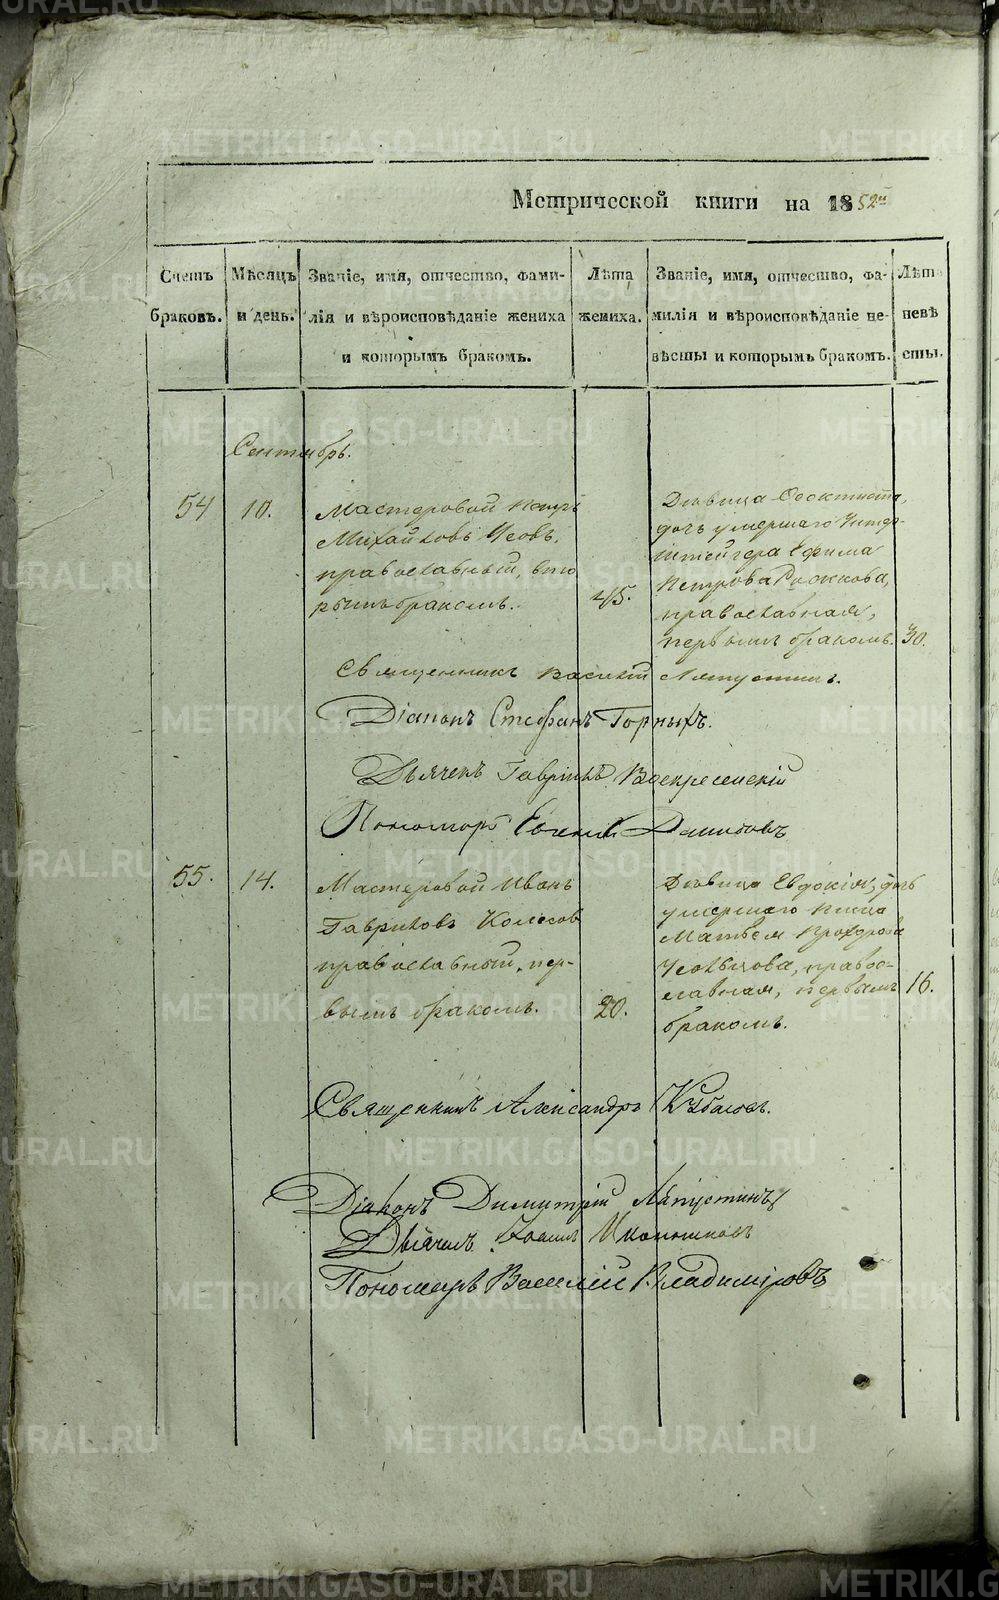 Метрической книги на 1852й
Счетъ браковъ.
Мѣсяцъ и день.
Званіе, имя, отчество, фами-
лія и вѣроисповѣданіе жениха
и которымъ бракомъ.
Лѣта жениха.
Званіе, имя, отчество, фа-
милія и вѣроисповѣданіе не-
вѣсты и которымъ бракомъ.
Лѣта невѣ
сты.
Сентябрь.
54
10.
Мастеровой Петръ
Михайловъ Усовъ,
православный, вто
рымъ бракомъ.
45.
Дѣвица Феоктиста,
дочь умершаго Унтер-
штейгера Ефима
Петрова
православная,
первымъ бракомъ.
30.
Священникъ Василій Ляпустинъ.
Діаконъ Стефанъ Горныхъ.
Дьячекъ Гавріилъ Воскресенскій
Пономарь Евгеній Данибовъ
55.
14.
Мастеровой Иванъ
Гавриловъ Колесов
православный, пер-
вымъ бракомъ.
20.
Дѣвица Евдокія, дочь
умершаго писца
Матвея Прохорова
Усольцова, правос-
лавная, первымъ
бракомъ.
16.
Священникъ Александръ
Діаконъ Димитрій Ляпустинъ
Дьячекъ Иконниковъ
Пономарь Василій Владиміровъ
METRIKI.GASO-URAL.RU